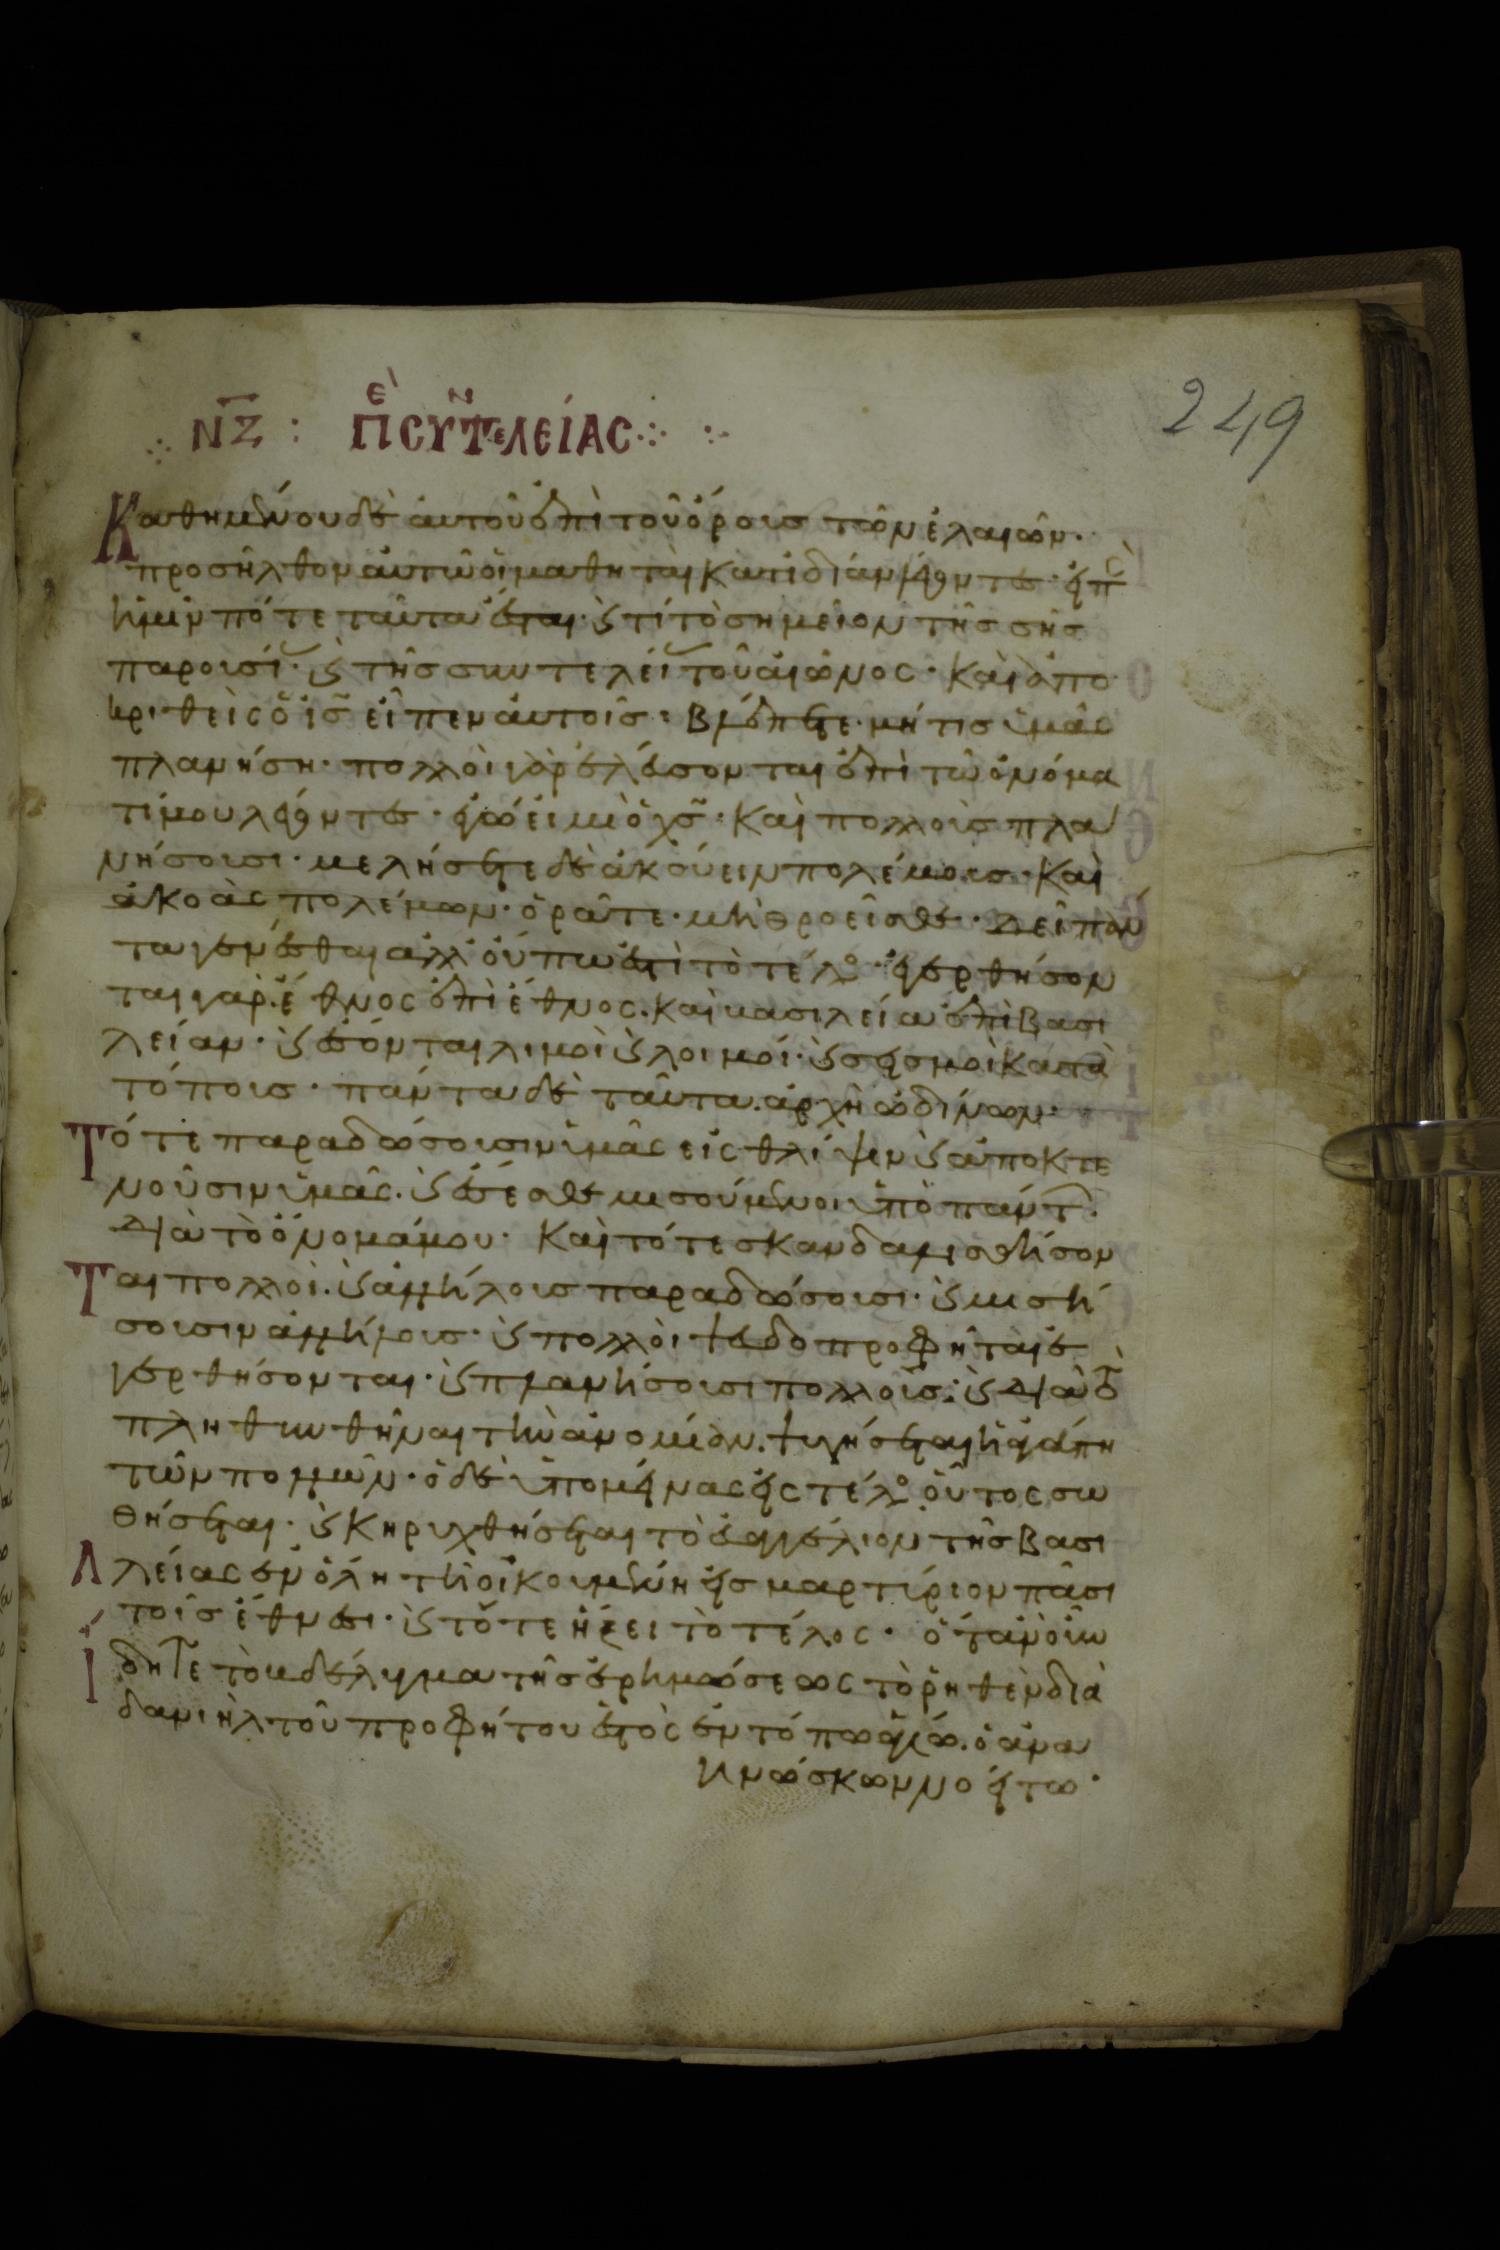 249
ΝΖ : ΠΕ ΣΥΝΤΕΛΕΊΑΣ
Καθημένου δὲ ἀυτοῦ ἐπὶ τοῦ ὄρους τῶν ἐλαιῶν·
προσῆλθον ἀυτῶ ὁι μαθηταὶ κατιδίαν λέγοντες· ἐιπὲ
ἡμῖν πότε ταῦτα ἔσται· καὶ τί τὸ σημεῖον τῆς σῆς
παρουσίας· καὶ τῆς συντελείας τοῦ αἰῶνος· Καὶ ἀπο
κριθεὶς ὁ ις εἶπεν ἀυτοῖς: Βλέπετε· μή τις ὑμᾶς
πλανήση· πολλοὶ γὰρ ἐλέυσονται ἐπὶ τῶ ὀνόμα
τί μου λέγοντες· ἐγώ ἐιμι ὁ χς· Καὶ πολλοὺς πλα
νήσουσι· μελήσετε δὲ ἀκούειν πολέμους· Καὶ
ἀκοὰς πολέμων· ὁρᾶτε· μὴ θροεῖσθε· Δεῖ πάν
τα γενέσθαι αλλ' ὀύπω ἐστὶ τὸ τέλος· ἐγερθήσον
ται γαρ ἔθνος ἐπὶ ἔθνος· καὶ βασιλεία ἐπὶ βασι
λείαν· καὶ ἔσονται λιμοὶ καὶ λοιμοί· καὶ σεισμοὶ κατὰ
τόπους· πάντα δὲ ταῦτα· ἀρχὴ ὠδίνων·
Τότε παραδώσουσιν ὑμᾶς εἰς θλίψιν καὶ ἀποκτε
νοῦσιν ὑμᾶς· καὶ ἔσεσθε μισούμενοι ὑπὸ πάντων·
Διὰ τὸ ὄνομά μου· Καὶ τότε σκανδαλισθήσον
Ται πολλοὶ· καὶ ἀλλήλους παραδώσουσι· καὶ μισή
σουσιν ἀλλήλους· καὶ πολλοὶ ψευδοπροφῆται ἐ
γερθήσονται· καὶ πλανήσουσι πολλούς· καὶ Διὰ τὸ
πληθυνθῆναι τὴν ἀνομίαν· ψυγήσεται ἡ ἀγάπη
τῶν πολλῶν· ὁ δὲ ὑπομείνας εἰς τέλος οὗτος σω
θήσεται· καὶ κηρυχθήσεται τὸ ἐυαγγέλιον τῆς βασι
λείας ἐν ὅλη τῆ οἰκουμένη εἰς μαρτύριον πᾶσι
τοῖς ἔθνεσι· καὶ τότε ἥξει τὸ τέλος· ὅταν οὖν
ἴδητε τὸ βδέλυγμα τῆς ἐρημώσεως τὸ ῥηθὲν διὰ
δανιὴλ τοῦ προφήτου ἑστὸς ἐν τόπω ἁγίω· ὁ ἀνα
γινώσκων νοείτω·